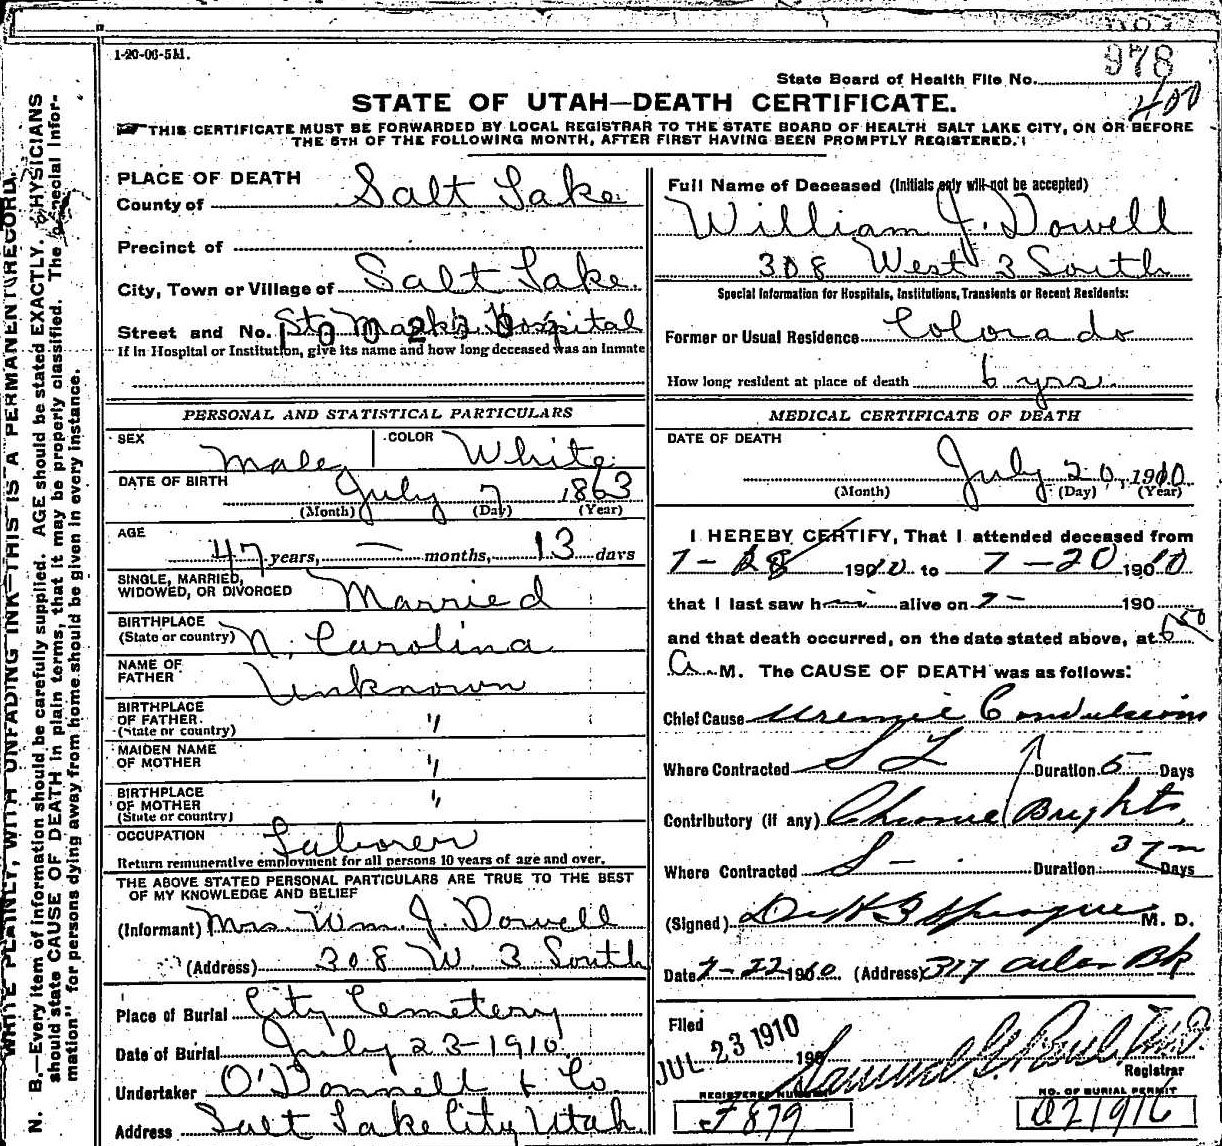 1-20-06-5M.
978
State Board of Health File No.
400
STATE OF UTAH—DEATH CERTIFICATE.
THIS CERTIFICATE MUST BE FORWARDED BY LOCAL REGISTRAR TO THE STATE BOARD OF HEALTH SALT LAKE CITY, ON OR BEFORE
THE 5TH OF THE FOLLOWING MONTH, AFTER FIRST HAVING BEEN PROMPTLY REGISTERED.
WRITE PLAINLY, WITH UNFADING INK—THIS IS A PERMANENT RECORD.
N. B.—Every item of information should be carefully supplied. AGE should be stated EXACTLY. PHYSICIANS
should state CAUSE OF DEATH in plain terms, that it may be properly classified. The "Special Infor-
mation" for persons dying away from home should be given in every instance.
PLACE OF DEATH
County of Salt Lake
Precinct of
City, Town or Village of Salt Lake
Street and No. St. Mark's Hospital
If in Hospital or Institution, give its name and how long deceased was an Inmate
PERSONAL AND STATISTICAL PARTICULARS
SEX Male COLOR White
DATE OF BIRTH July 7 1863
(Month) (Day) (Year)
AGE 47 years, — months, 13 days
SINGLE, MARRIED,
WIDOWED, OR DIVORCED Married
BIRTHPLACE
(State or country) N. Carolina
NAME OF
FATHER Unknown
BIRTHPLACE
OF FATHER "
(State or country)
MAIDEN NAME
OF MOTHER "
BIRTHPLACE
OF MOTHER "
(State or country)
OCCUPATION Laborer
Return remunerative employment for all persons 10 years of age and over.
THE ABOVE STATED PERSONAL PARTICULARS ARE TRUE TO THE BEST
OF MY KNOWLEDGE AND BELIEF
(Informant) Mrs. Wm. J. Dowell
(Address) 308 W. 3 South
Place of Burial City Cemetery
Date of Burial July 23-1910
Undertaker O'Donnell & Co
Address Salt Lake City Utah
Full Name of Deceased (Initials only will not be accepted)
William J. Dowell
308 West 3 South
Special Information for Hospitals, Institutions, Transients or Recent Residents:
Former or Usual Residence Colorado
How long resident at place of death 6 yrs.
MEDICAL CERTIFICATE OF DEATH
DATE OF DEATH
July 20, 1910
(Month) (Day) (Year)
I HEREBY CERTIFY, That I attended deceased from
7- 1910 to 7-20 1910
that I last saw him alive on 7- 190
and that death occurred, on the date stated above, at 6 50
A. M. The CAUSE OF DEATH was as follows:
Chief Cause Uremic Convulsions
Where Contracted S L Duration 5 Days
Contributory (if any) Chronic Brights
Where Contracted S — Duration Days
(Signed) M. D.
Date 7-22 1910 (Address) 317 Atlas Bk
Filed JUL 23 1910 190
Registrar
REGISTERED NUMBER NO. OF BURIAL PERMIT
F879 D21916